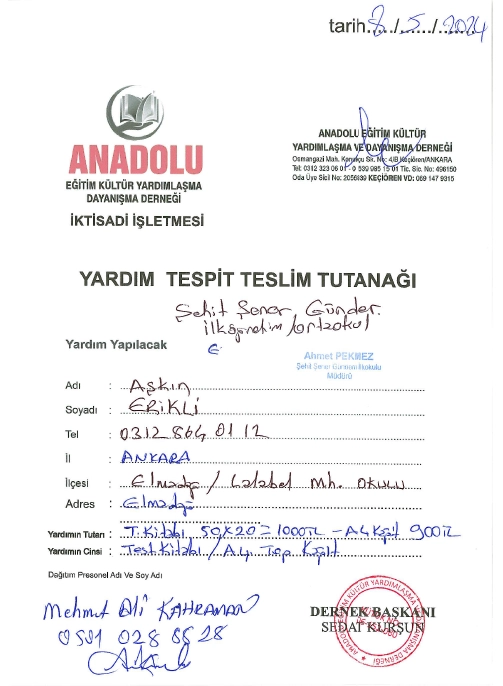 tarih 8/5/2024
ANADOLU
EĞİTİM KÜLTÜR YARDIMLAŞMA
DAYANIŞMA DERNEĞİ
İKTİSADİ İŞLETMESİ
ANADOLU EĞİTİM KÜLTÜR
YARDIMLAŞMA VE DAYANIŞMA DERNEĞİ
Osmangazi Mah. Sk. No: 4/B Keçiören/ANKARA
Tel: 0312 323 06 01 - 0 539 985 15 01 Tic. Sic. No: 496150
Oda Üye Sicil No: 2056839 KEÇİÖREN VD: 069 147 9315
YARDIM TESPİT TESLİM TUTANAĞI
Şehit Şener Günder.
İlköğretim/ortaokul
Yardım Yapılacak
Ahmet PEKMEZ
Şehit Şener İlkokulu
Müdürü
Adı : Aşkın
Soyadı : ERİKLİ
Tel : 0312 864 01 12
İl : ANKARA
İlçesi : Elmadağ / Mh. OKULU
Adres : Elmadağ
Yardımın Tutarı : T. Kitabı 50X20=1000TL - A4 Kağıt 900TL
Yardımın Cinsi : Test Kitabı / A4 Top Kağıt
Dağıtım Presonel Adı Ve Soy Adı
Mehmut Ali KAHRAMAN
DERNEK BAŞKANI
SEDAT KURŞUN